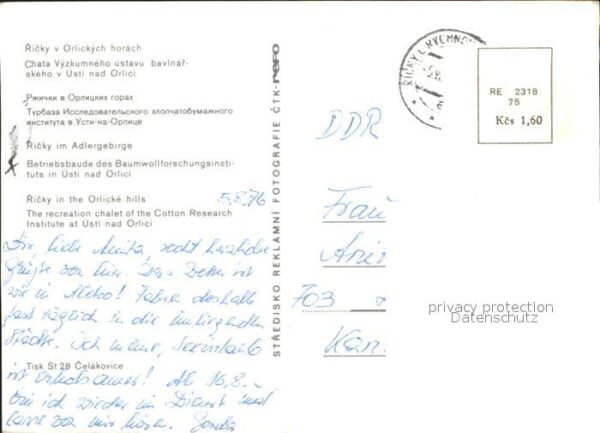 Říčky v Orlických horách
Chata Výzkumného ústavu bavlnář-
ského v Ústí nad Orlicí
Ржички в Орлицких горах
Турбаза Исследовательского хлопчатобумажного
института в Усти-на-Орлице
Říčky im Adlergebirge
Betriebsbaude des Baumwollforschungsinsti-
tuts in Ústí nad Orlicí
Říčky in the Orlické hills
The recreation chalet of the Cotton Research
Institute at Ústí nad Orlicí
5.8.76
liebe Anita, recht herzliche
Grüße von hier. Das Wetter ist
wie im Fahre deshalb
fast täglich in die umliegenden
Städte. Ich
Tisk St 28 Čelákovice
ist Ab 16.8.
bin ich wieder im Dienst und
lasse von mir hören.
STŘEDISKO REKLAMNÍ FOTOGRAFIE ČTK-PEFO
ŘÍČKY U RYCHNO
RE 2318
75
Kčs 1,60
DDR
Frau
703
privacy protection
Datenschutz